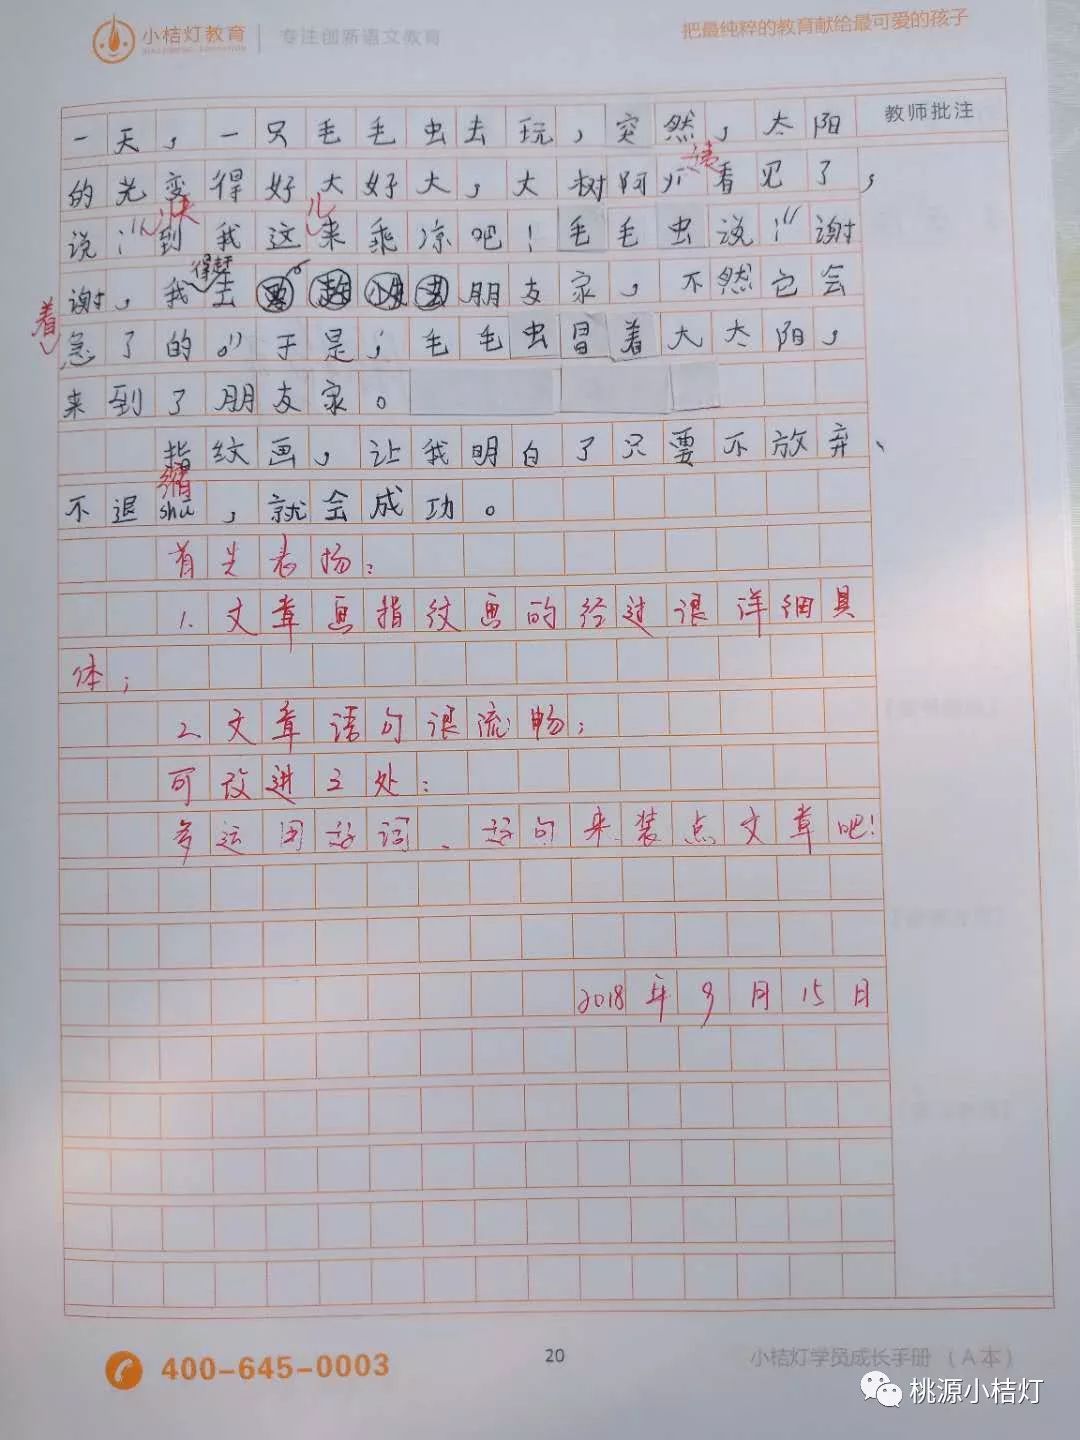 小桔灯教育 专注创新语文教育
把最纯粹的教育献给最可爱的孩子
教师批注
一天，一只毛毛虫去玩，突然，太阳
的光变得好大好大，大树阿姨看见了，
说：“快到我这儿来乘凉吧！毛毛虫说：“谢
谢，我得赶去朋友家，不然它会
着急了的。”于是，毛毛虫冒着大太阳，
来到了朋友家。
指纹画，让我明白了只要不放弃、
不退缩shū，就会成功。
首先表扬：
1.文章画指纹画的经过很详细具
体；
2.文章语句很流畅；
可改进之处：
多运用好词、好句来装点文章吧！
2018年9月15日
400-645-0003
20
小桔灯学员成长手册（A本）
桃源小桔灯